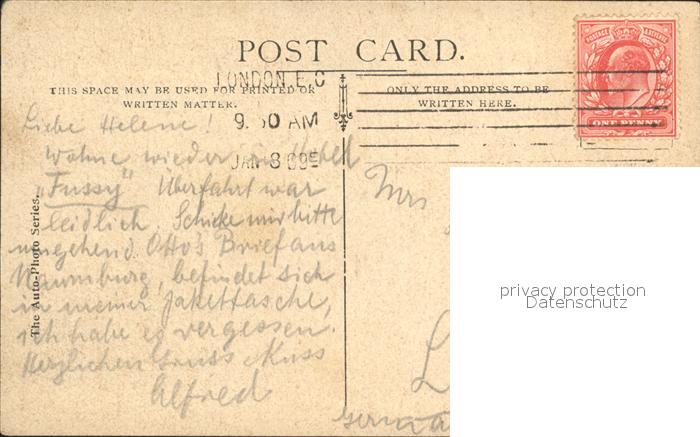 POST CARD.
LONDON E.C
THIS SPACE MAY BE USED FOR PRINTED OR
WRITTEN MATTER.
ONLY THE ADDRESS TO BE
WRITTEN HERE.
POSTAGE REVENUE
ONE PENNY
9. 0 AM
JAN 8 09
The Auto-Photo Series.
Liebe Helene!
Wohne wieder Hotel
"Fussy" Überfahrt war
leidlich. Schicke mir bitte
umgehend Otto's Brief aus
Naumburg, befindet sich
in meiner Jakettasche,
ich habe es vergessen.
Herzlichen Gruss Kuss
Alfred
Mrs
L
Germa
privacy protection
Datenschutz